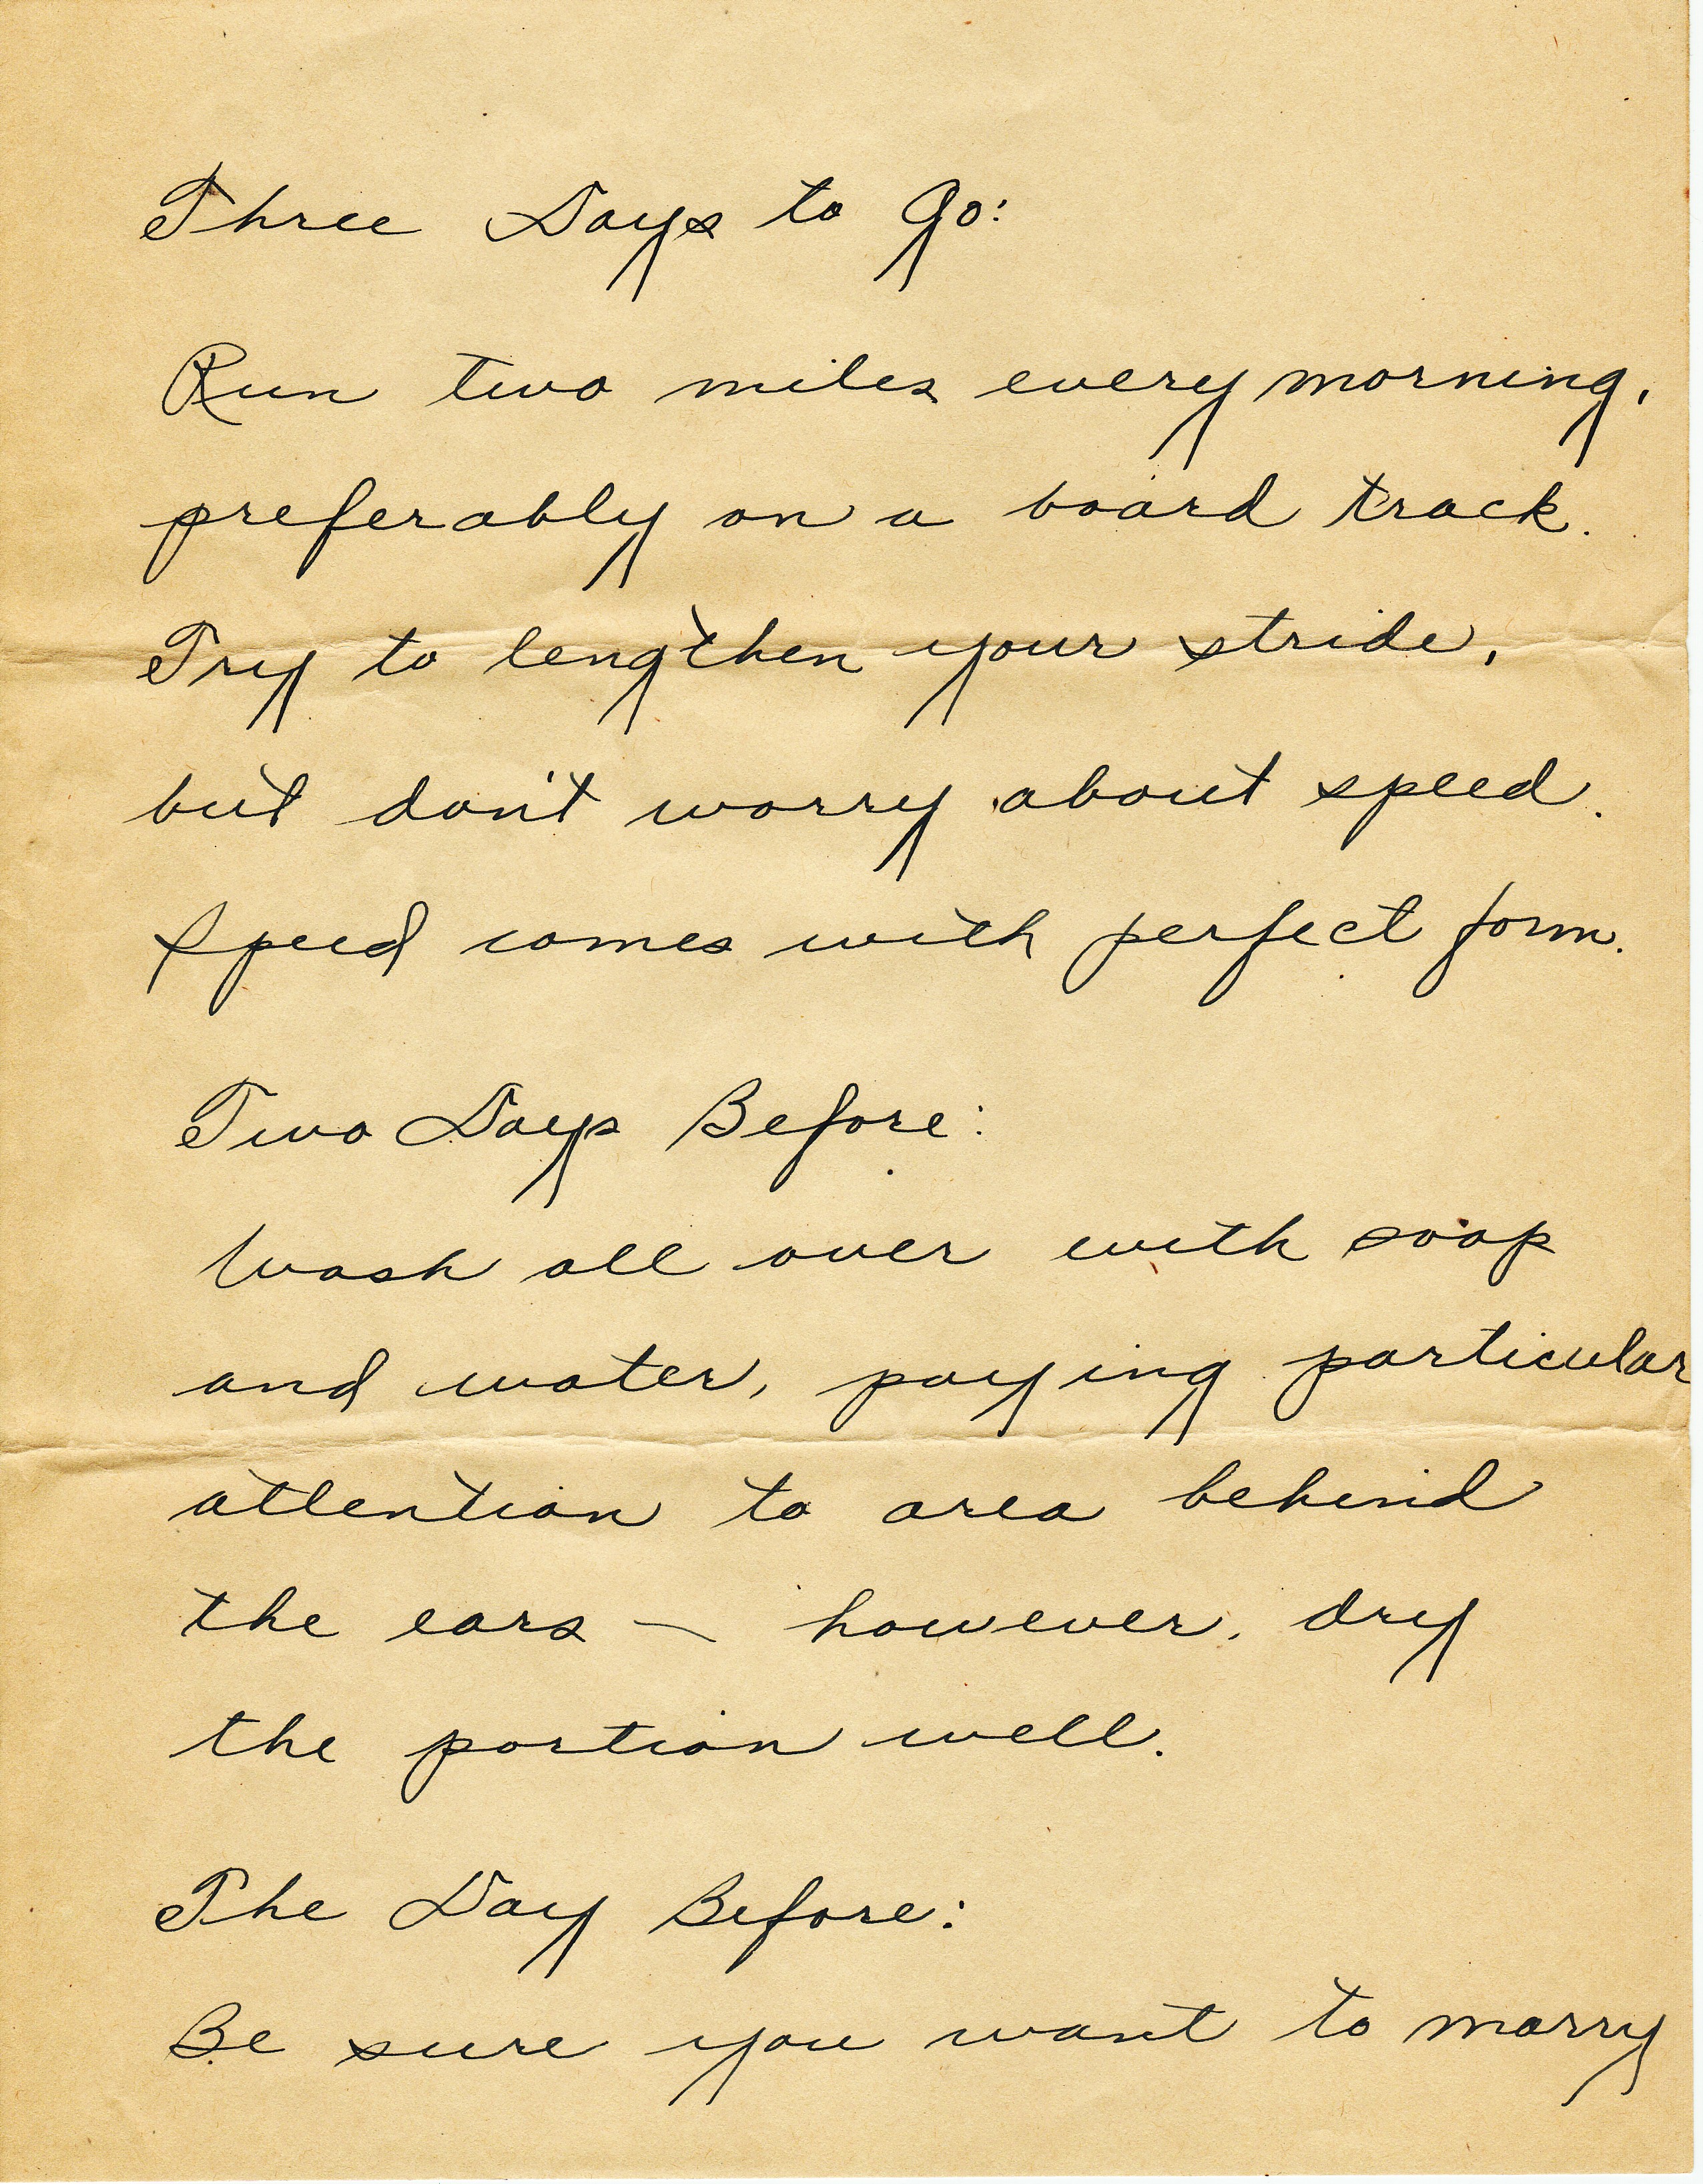 Three Days to Go:
Run two miles every morning,
preferably on a board track.
Try to lengthen your stride,
but don't worry about speed.
Speed comes with perfect form.
Two Days Before:
Wash all over with soap
and water, paying particular
attention to area behind
the ears — however, dry
the portion well.
The Day Before:
Be sure you want to marry